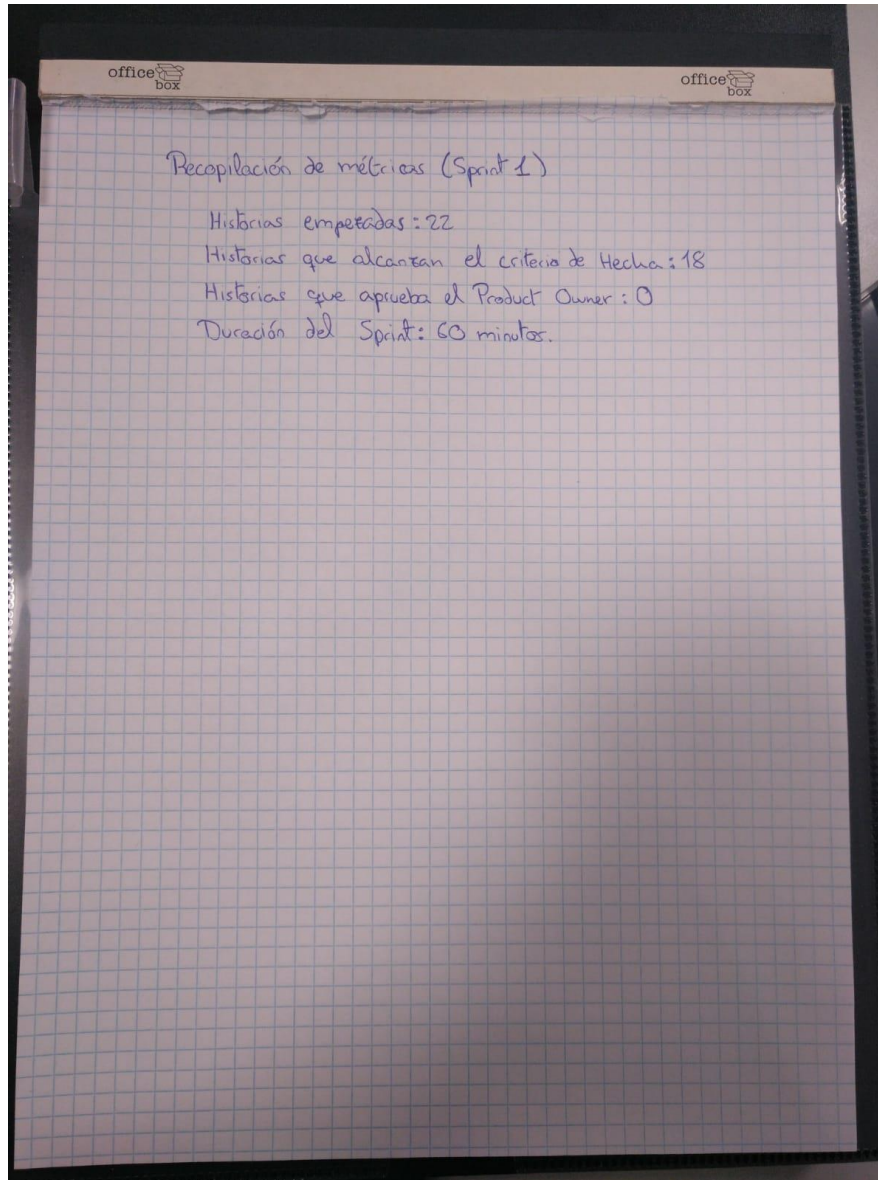 office box
office box
Recopilación de métricas (Sprint 1)
Historias empezadas: 22
Historias que alcanzan el criterio de Hecha: 18
Historias que aprueba el Product Owner: 0
Duración del Sprint: 60 minutos.